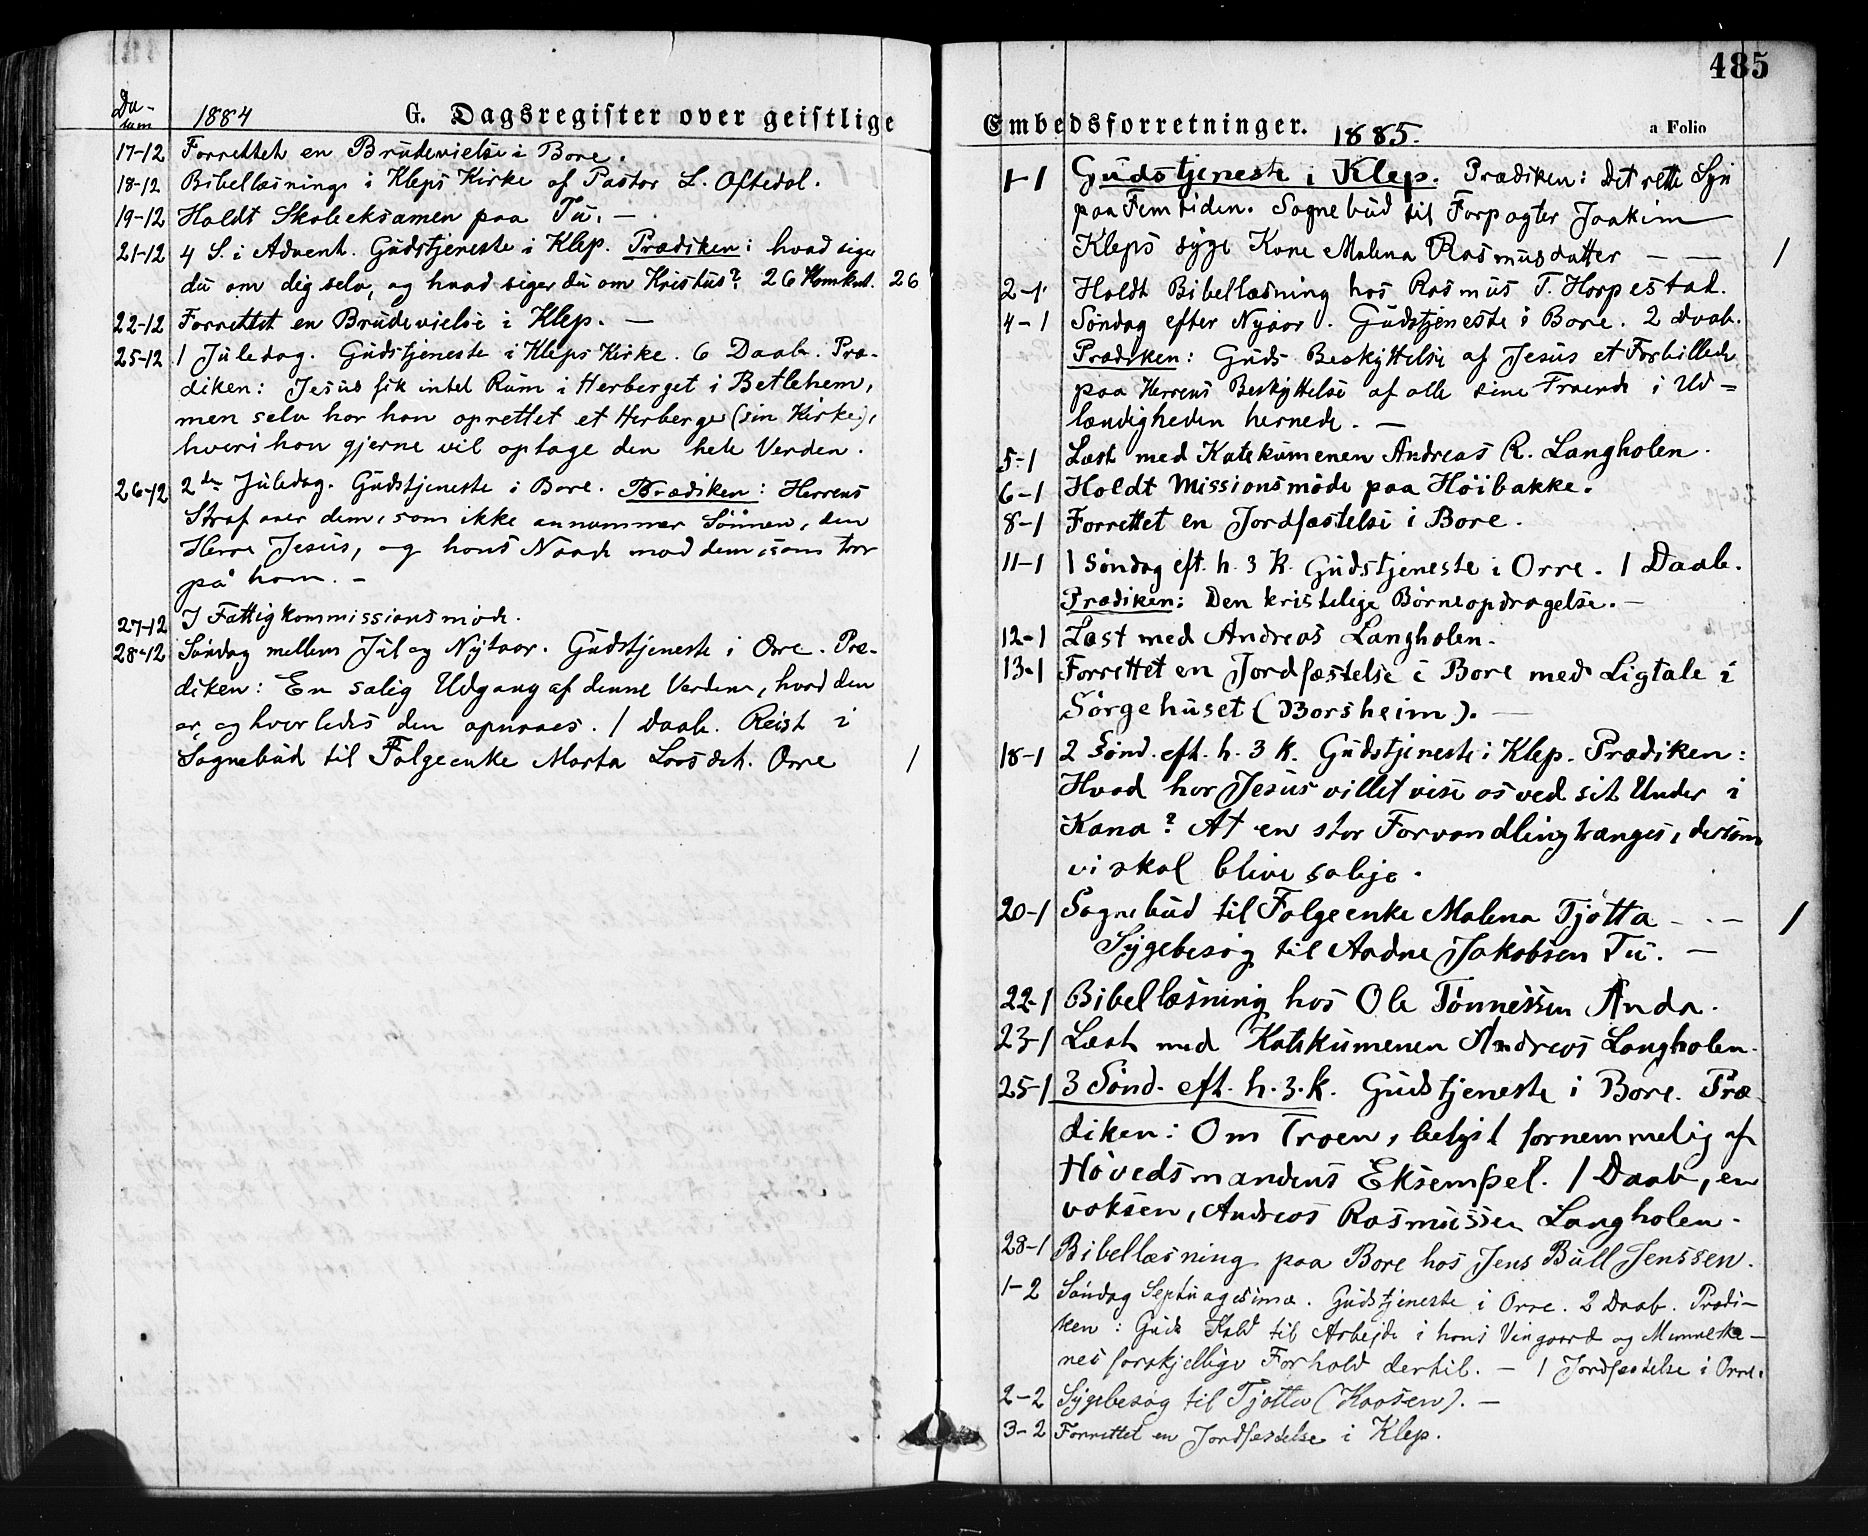 Da-
tum
1884
G. Dagsregister over geistlige
17-12 Forrettet en Brudevielse i Bore.
18-12 Bibellæsning i Kleps Kirke af Pastor L. Oftedal.
19-12 Holdt Skoleeksamen paa Tu. —
21-12 4 S. i Advent. Gudstjeneste i Klep. Prædiken: hvad siger
du om dig selv, og hvad siger du om Kristus? 26 Komkat. 26
22-12 Forrettet en Brudevielse i Klep. —
25-12 1 Juledag. Gudstjeneste i Kleps Kirke. 6 Daab. Præ-
diken: Jesus fik intet Rum i Herberget i Betlehem,
men selv har han oprettet et Herberge (sin Kirke),
hvori han gjerne vil optage den hele Verden.
26-12 2den Juledag. Gudstjeneste i Bore. Prædiken: Herrens
Straf over dem, som ikke annammer Sønnen, den
Herre Jesus, og hans Naade mod dem, som tror
på ham. —
27-12 I Fattigkommissionsmøde.
28-12 Søndag mellem Jul og Nytaar. Gudstjeneste i Orre. Præ-
diken: En salig Udgang af denne Verden, hvad den
er, og hvorledes den opnaaes. 1 Daab. Reist i
Sognebud til Folgeenke Marta Larsdat. Orre 1
485
Embedsforretninger. 1885.
a Folio
1-1 Gudstjeneste i Klep. Prædiken: Det rette Syn
paa Femtiden. Sognebud til Forpagter Joakim
Kleps syge Kone Malena Rasmusdatter — — 1
2-1 Holdt Bibellæsning hos Rasmus T. Horpestad.
4-1 Søndag efter Nyaar. Gudstjeneste i Bore. 2 Daab.
Prædiken: Guds Beskyttelse af Jesus et Forbillede
paa Herrens Beskyttelse af alle sine Troende i Ud-
lændigheden hernede. —
5-1 Læst med Katekumenen Andreas R. Langholen.
6-1 Holdt Missionsmøde paa Høibakke.
8-1 Forrettet en Jordfæstelse i Bore.
11-1 1 Søndag eft. h. 3 K. Gudstjeneste i Orre. 1 Daab.
Prædiken: Den kristelige Børneopdragelse. —
12-1 Læst med Andreas Langholen.
13-1 Forrettet en Jordfæstelse i Bore med Ligtale i
Sørgehuset (Borsheim). —
18-1 2 Sønd. eft. h. 3 K. Gudstjeneste i Klep. Prædiken:
Hvad har Jesus villet vise os ved sit Under i
Kana? At en stor Forvandling trænges, dersom
vi skal blive salige.
20-1 Sognebud til Folgeenke Malena Tjøtta — . — 1
Sygebesøg til Aadne Jakobsen Tu. —
22-1 Bibellæsning hos Ole Tønnessen Anda.
23-1 Læst med Katekumenen Andreas Langholen.
25-1 3 Sønd. eft. h. 3. K. Gudstjeneste i Bore. Præ-
diken: Om Troen, belyst fornemmelig af
Høvedsmandens Eksempel. 1 Daab, en
voksen, Andreas Rasmussen Langholen.
28-1 Bibellæsning paa Bore hos Jens Bull Jenssen.
1-2 Søndag Septuagesima. Gudstjeneste i Orre. 2 Daab. Prædi-
ken: Guds Kald til Arbejde i hans Vingaard og Menneske-
nes forskjellige Forhold dertil. — 1 Jordfæstelse i Orre.
2-2 Sygebesøg til Tjøtta (Kaasen). —
3-2 Forrettet en Jordfæstelse i Klep.